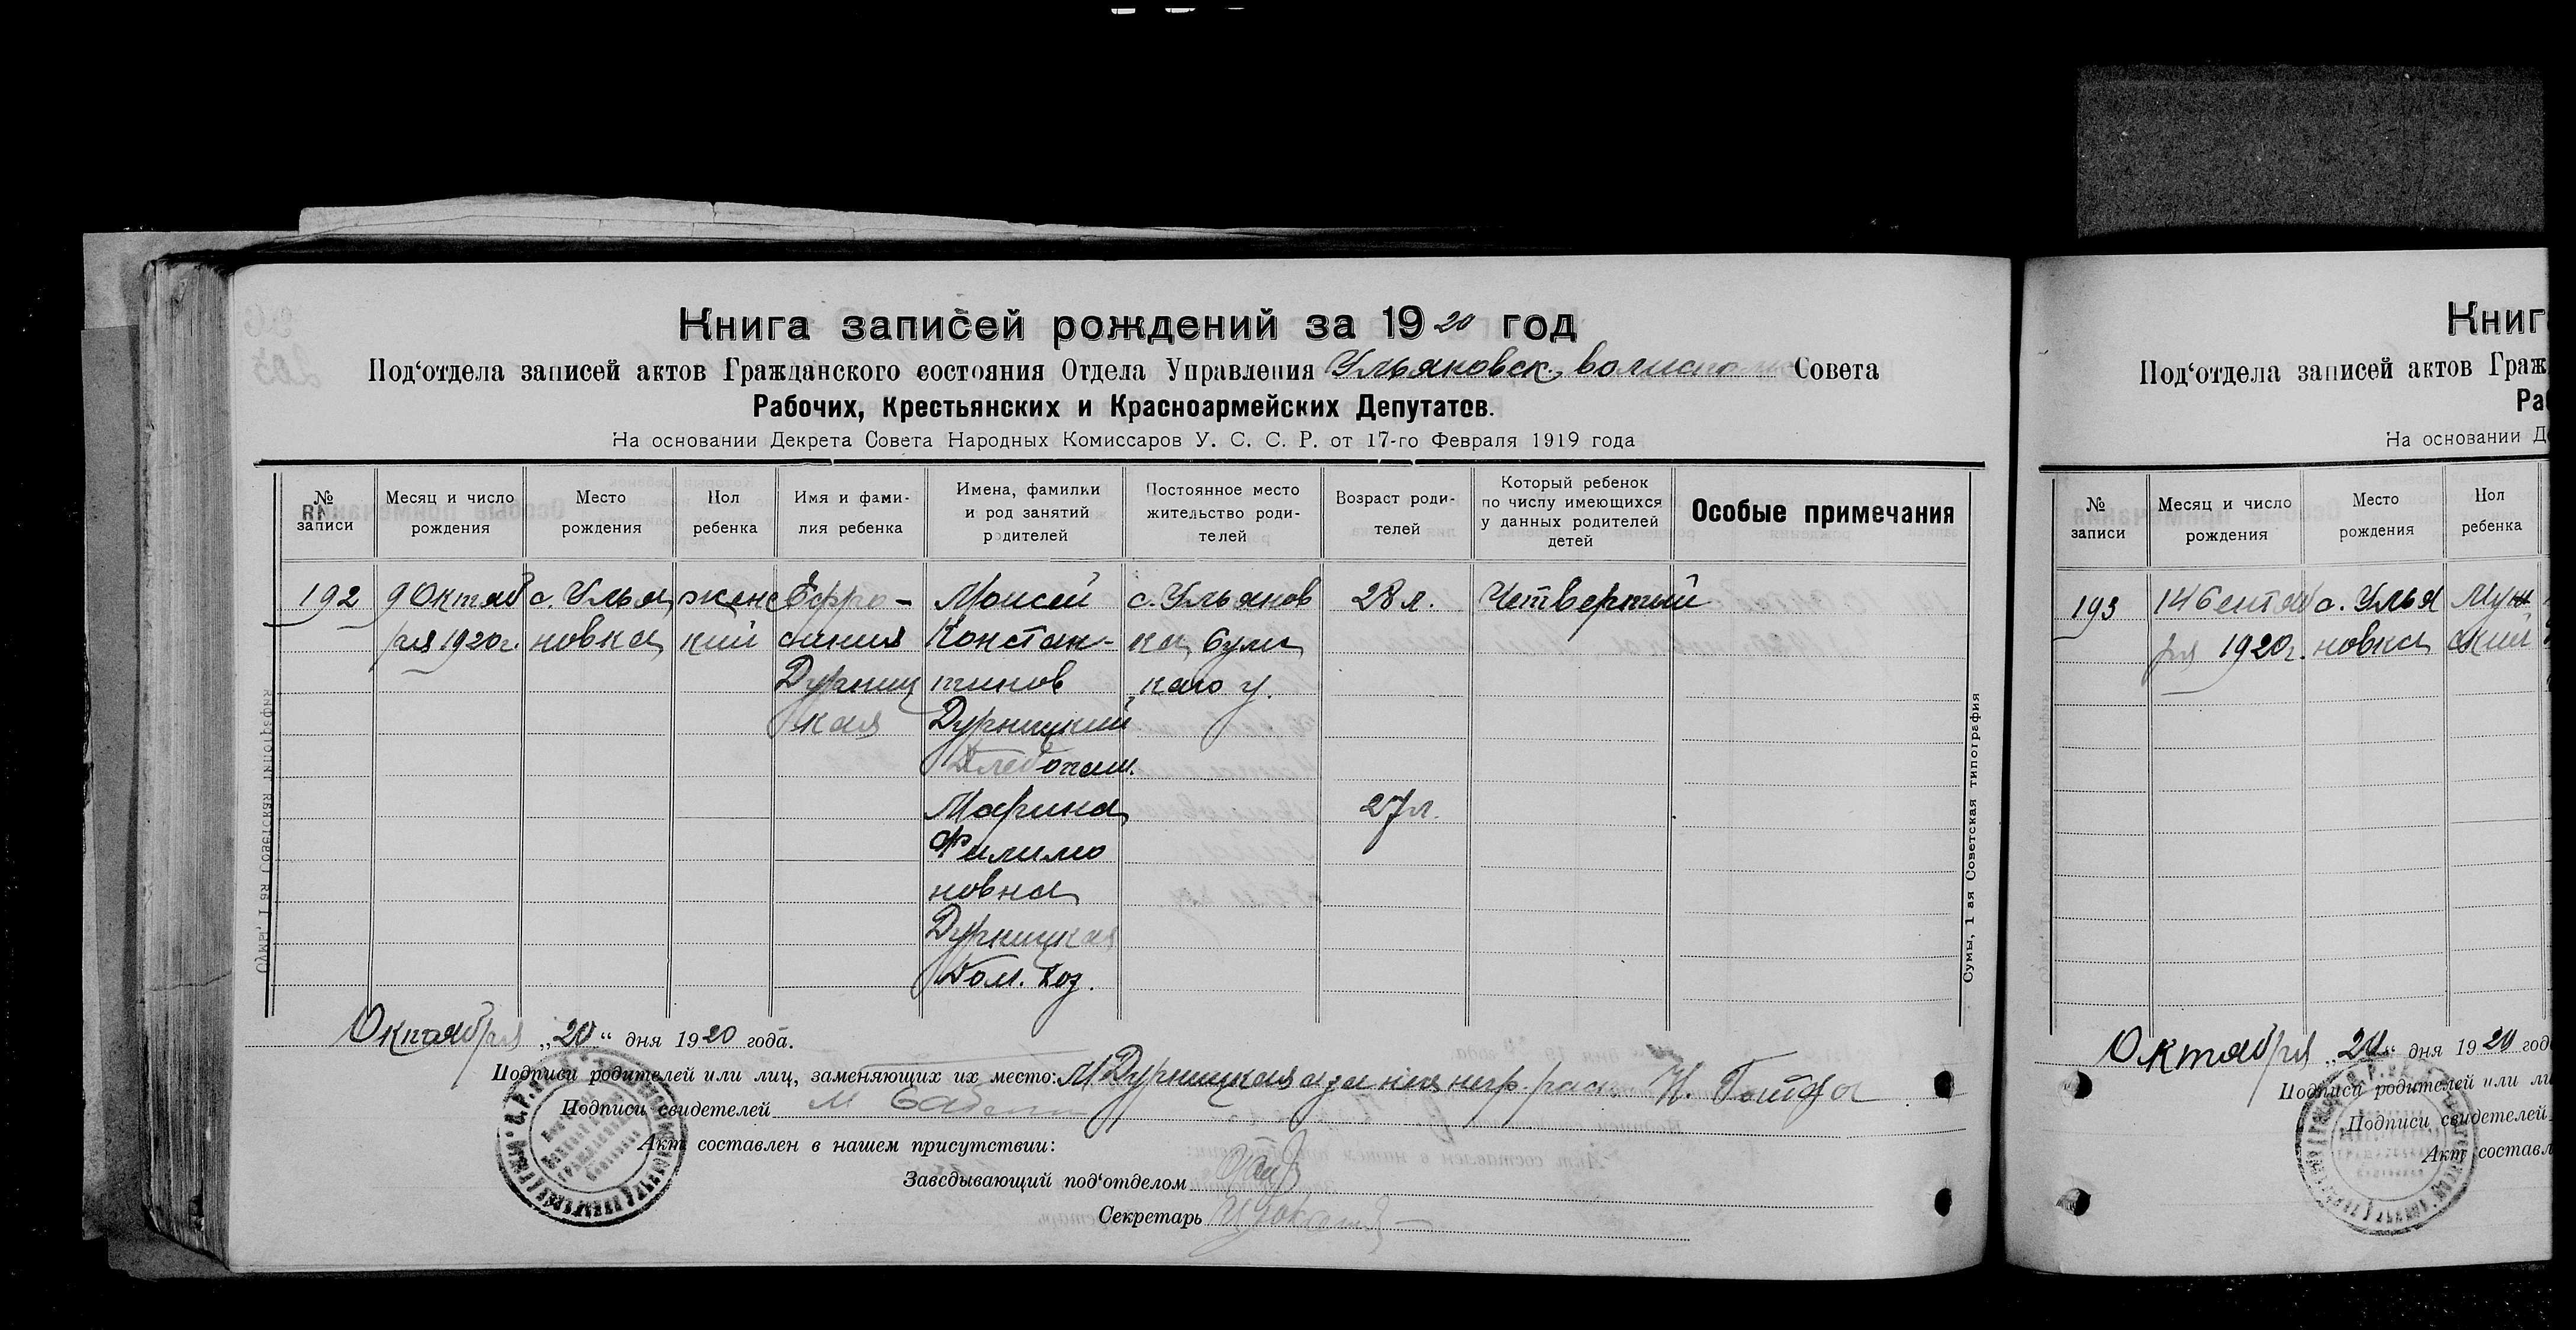 Книга записей рождений за 1920 год
Под‘отдела записей актов Гражданского состояния Отдела Управления Ульяновск. Совета
Рабочих, Крестьянских и Красноармейских Депутатов.
На основании Декрета Совета Народных Комиссаров У. С. С. Р. от 17-го Февраля 1919 года
№ записи
Месяц и число рождения
Место рождения
Пол ребенка
Имя и фами-
лия ребенка
Имена, фамилии
и род занятий
родителей
Постоянное место
жительство роди-
телей
Возраст роди-
телей
Который ребенок
по числу имеющихся
у данных родителей
детей
Особые примечания
192 9 Октяб с. Улья женс Ефро- Моисей с. Ульянов 28 л. Четвертый
ря 1920 г. новка кий синия Констан- ка, Сум
Дурниц тинов каго у.
кая Дурницкий
Хлебопаш.
Марина 27 л.
Филимо
новна
Дурницкая
Дом. хоз.
Сумы, 1 ая Советская типография
Октября „20“ дня 1920 года.
Подписи родителей или лиц, заменяющих их место: М Дурницкая а за нея негр. рас. Н.
Подписи свидетелей М
Акт составлен в нашем присутствии:
Заведывающий под‘отделом
Секретарь
Книг
Под‘отдела записей актов Граж
Ра
На основании Д
№ записи
Месяц и число рождения
Место рождения
Пол ребенка
193 14 Сентяб с. Улья Муж
ря 1920 г. новка ский
Октября „20“ дня 1920 год
Подписи родителей или ли
Подписи свидетелей
Акт составл